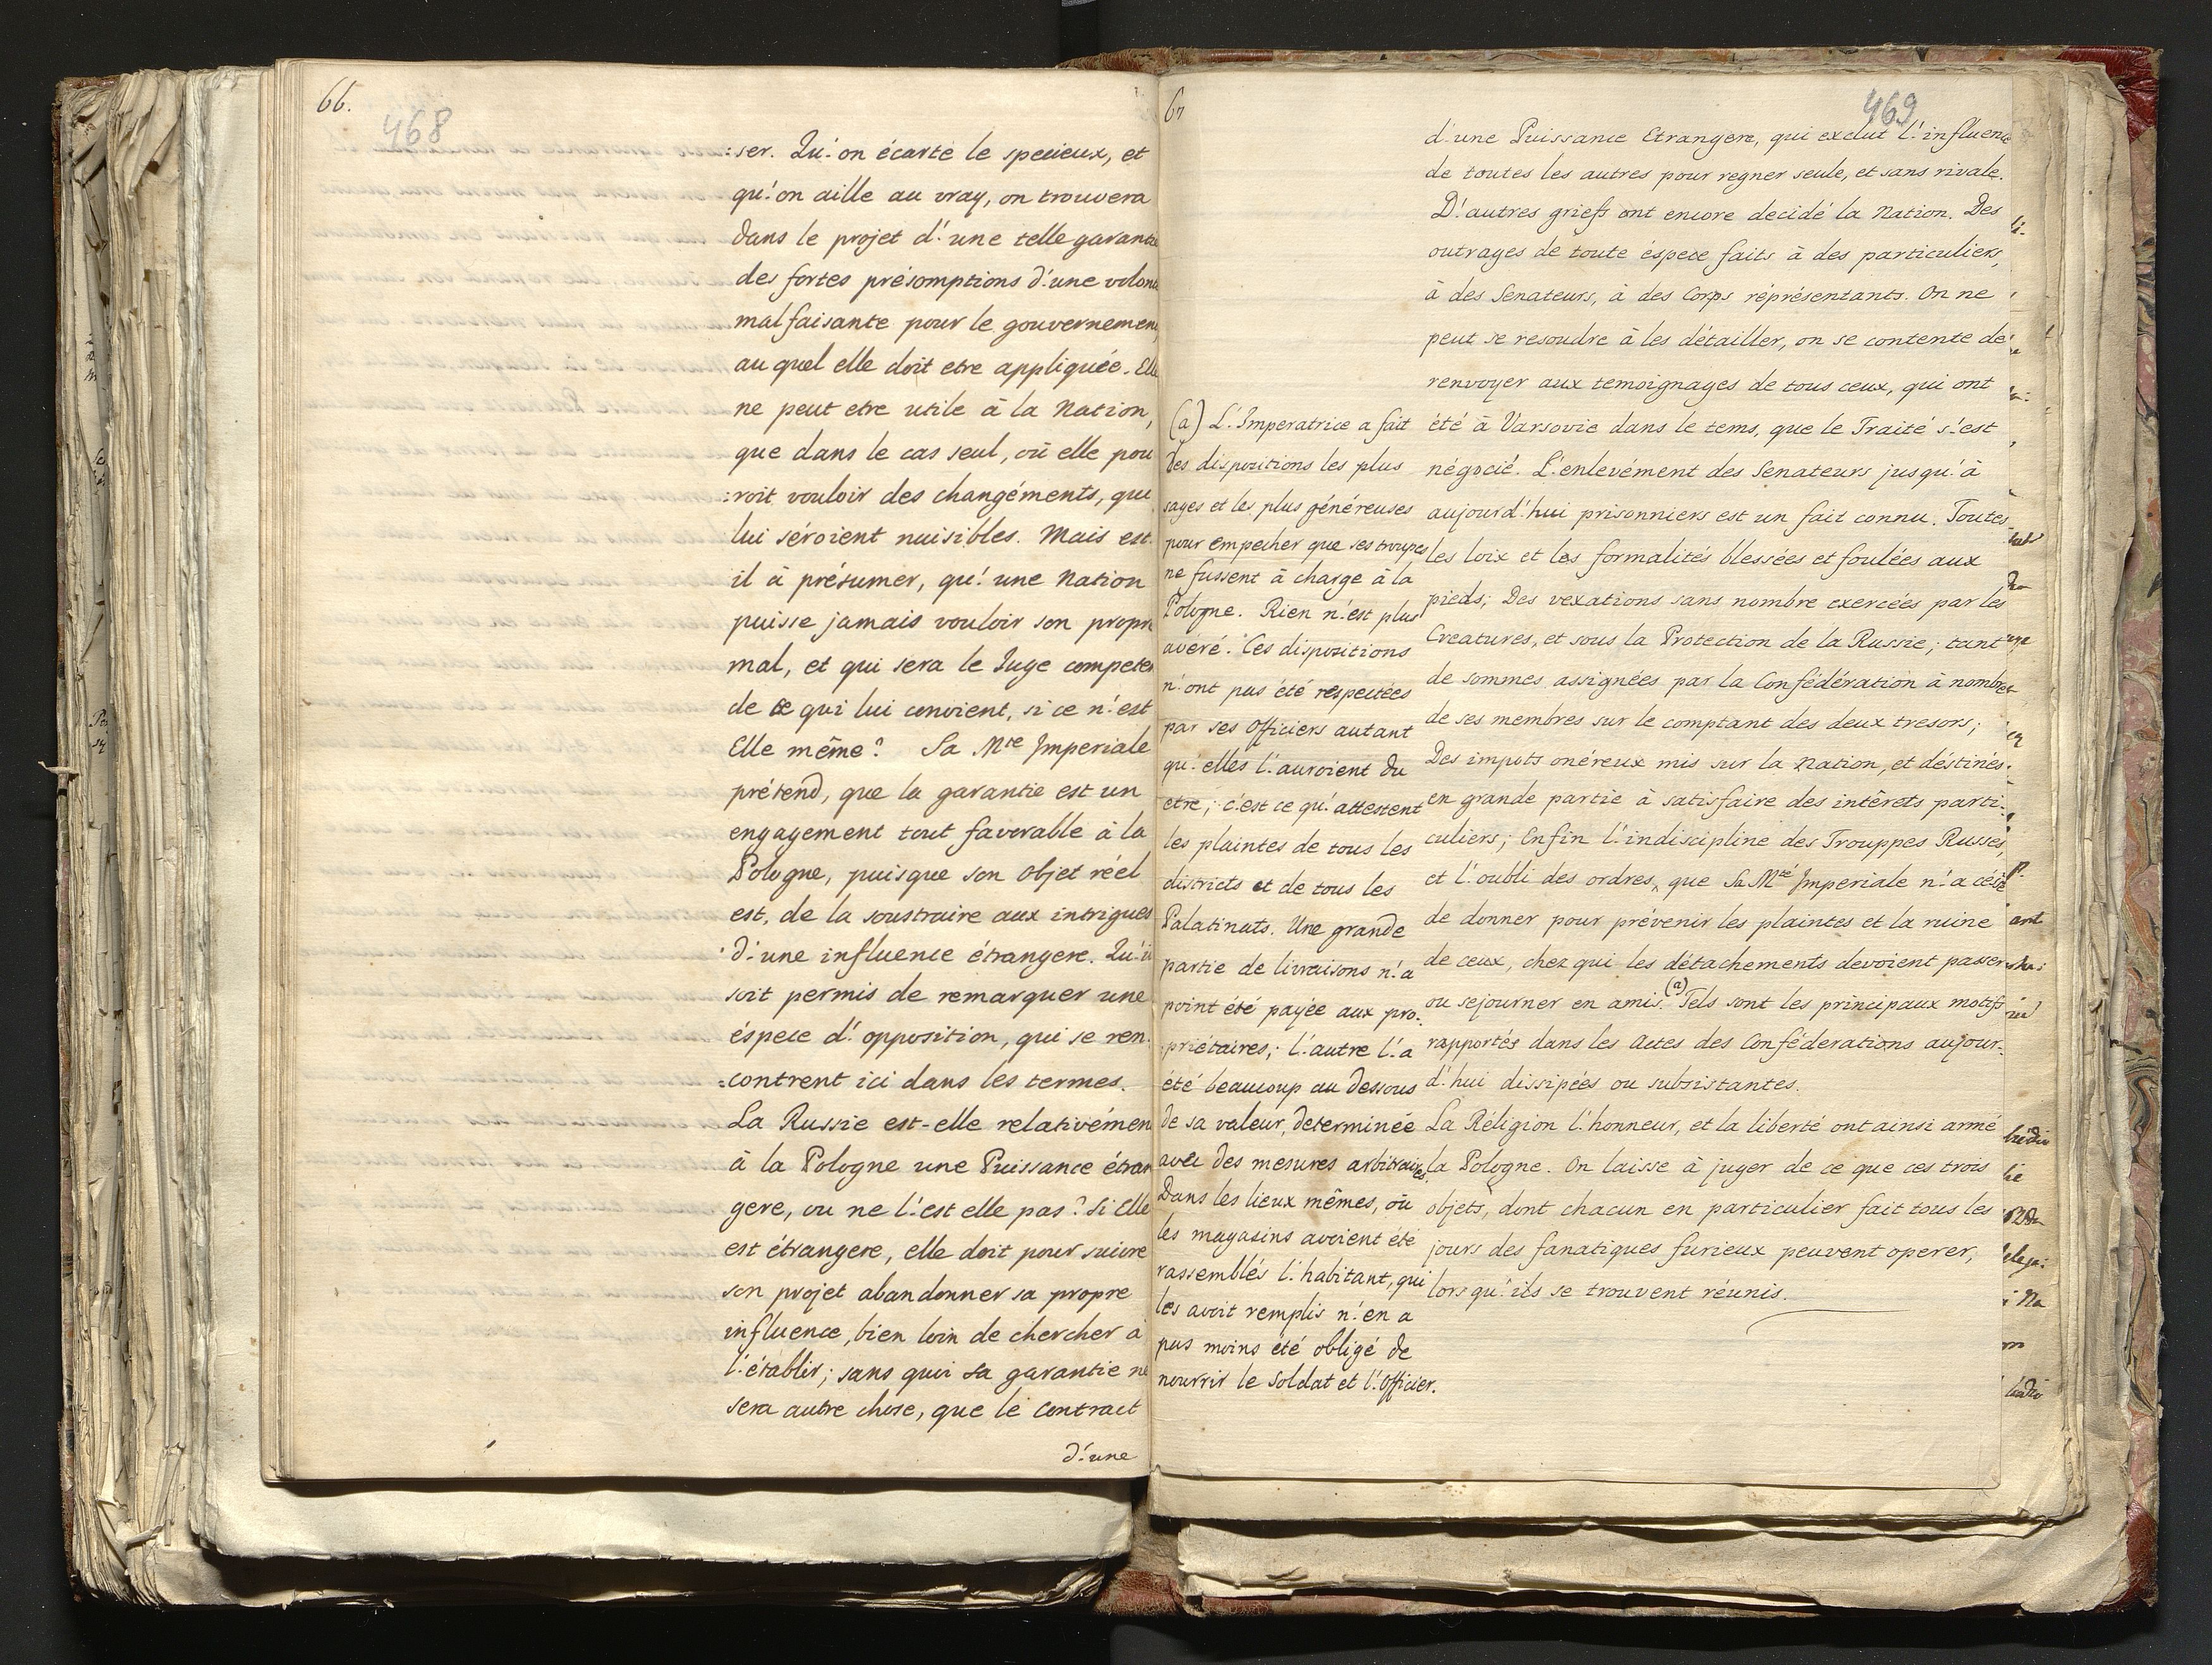 66.
468
:ser. Qu'on écarte le specieux, et
qu'on aille au vray, on trouvera
dans le projet d'une telle garantie
des fortes présomptions d'une volon
malfaisante pour le gouvernemen
au quel elle doit etre appliquée. Elle
ne peut etre utile à la Nation,
que dans le cas seul, où elle pou
:roit vouloir des changéments, qui
lui séroient nuisibles. Mais est
il à présumer, qu'une Nation
puisse jamais vouloir son propre
mal, et qui sera le Juge competen
de ce qui lui convient, si ce n'est
Elle même? Sa Mté Imperiale
prétend, que la garantie est un
engagement tout favorable à la
Pologne, puisque son objet réel
est, de la soustraire aux intrigues
d'une influence étrangere. Qu'il
soit permis de remarquer une
éspece d'opposition, qui se ren
:contrent ici dans les termes.
La Russie est-elle relativémen
à la Pologne une Puissance étran
gere, ou ne l'est elle pas? Si Elle
est étrangere, elle doit pour suivre
son projet abandonner sa propre
influence, bien loin de chercher à
l'établir; sans quoi sa garantie ne
sera autre chose, que le Contract
d'une
67
469
d'une Puissance Etrangere, qui exclut l'influence
de toutes les autres pour regner seule, et sans rivale.
D'autres griefs ont encore decidé la Nation. Des
outrages de toute éspece faits à des particuliers,
à des Senateurs, à des Corps réprésentants. On ne
peut se resoudre à les détailler, on se contente de
renvoyer aux temoignages de tous ceux, qui ont
été à Varsovie dans le tems, que le Traité s'est
négocié. L'enlevément des Senateurs jusqu'à
aujourd'hui prisonniers est un fait connu. Toutes
les loix et les formalités blessées et foulées aux
pieds; Des vexations sans nombre exercées par les
Creatures, et sous la Protection de la Russie; tant
de sommes assignées par la Confédération à nombre
de ses membres sur le comptant des deux tresors;
Des impots onéreux mis sur la Nation, et déstinés
en grande partie à satisfaire des intêrets parti:
culiers; Enfin l'indiscipline des Trouppes Russes,
et l'oubli des ordres, que Sa Mté Imperiale n'a céssé
de donner pour prévenir les plaintes et la ruine
de ceux, chez qui les détachements devoient passer
ou sejourner en amis. (a) Tels sont les principaux motifs
rapportés dans les Actes des Conféderations aujour:
d'hui dissipées ou subsistantes.
La Réligion l'honneur, et la liberté ont ainsi armé
la Pologne. On laisse à juger de ce que ces trois
objets, dont chacun en particulier fait tous les
jours des fanatiques furieux peuvent operer,
lorsqu'ils se trouvent réunis.
(a) L'Imperatrice a fait
des dispozitions les plus
sages et les plus généreuses
pour empecher que ses troupes
ne fussent à charge à la
Pologne. Rien n'est plus
avéré. Ces dispozitions
n'ont pas été respectées
par ses Officiers autant
qu'elles l'auroient du
etre; c'est ce qu'attestent
les plaintes de tous les
districts et de tous les
Palatinats. Une grande
partie de livraisons n'a
point été payée aux pro:
:priétaires; l'autre l'a
été beaucoup au dessous
de sa valeur, determinée
avec des mesures arbitraires.
Dans les lieux mêmes, où
les magasins avoient été
rassemblés l'habitant, qui
les avoit remplis n'en a
pas moins été obligé de
nourrir le Soldat et l'Officier.